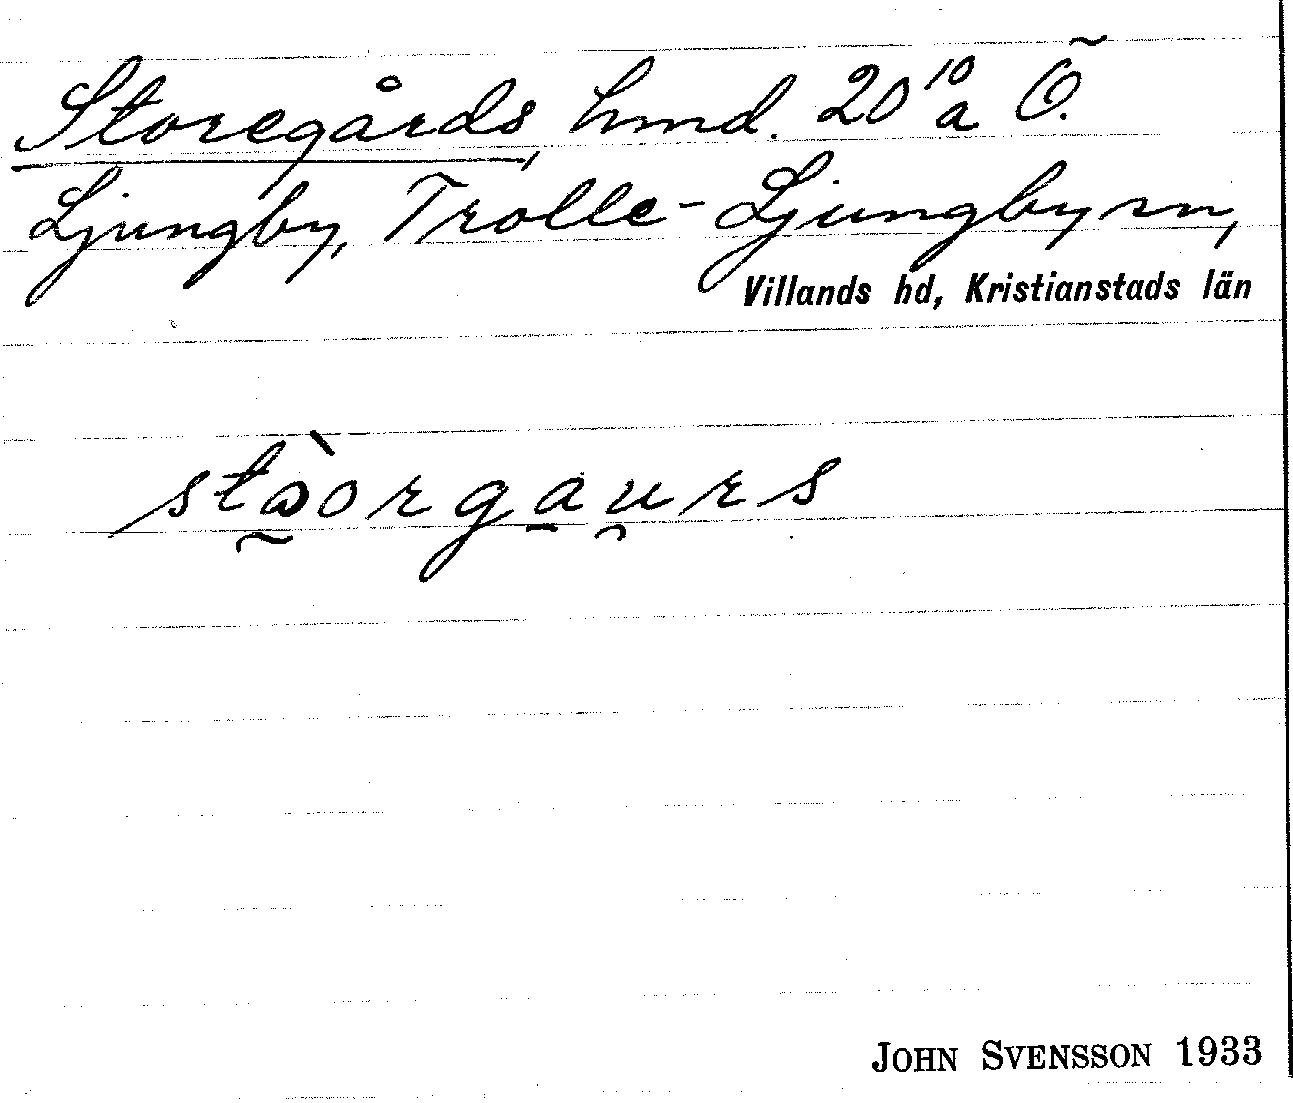 Storegårds, hmd. 20¹⁰a Ö.
Ljungby, Trolle-Ljungby sn,
Villands hd, Kristianstads län
stəòrgaurs
JOHN SVENSSON 1933